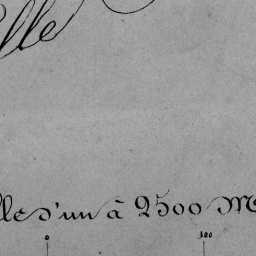 lle
lle d'un à 2500 M
0 100